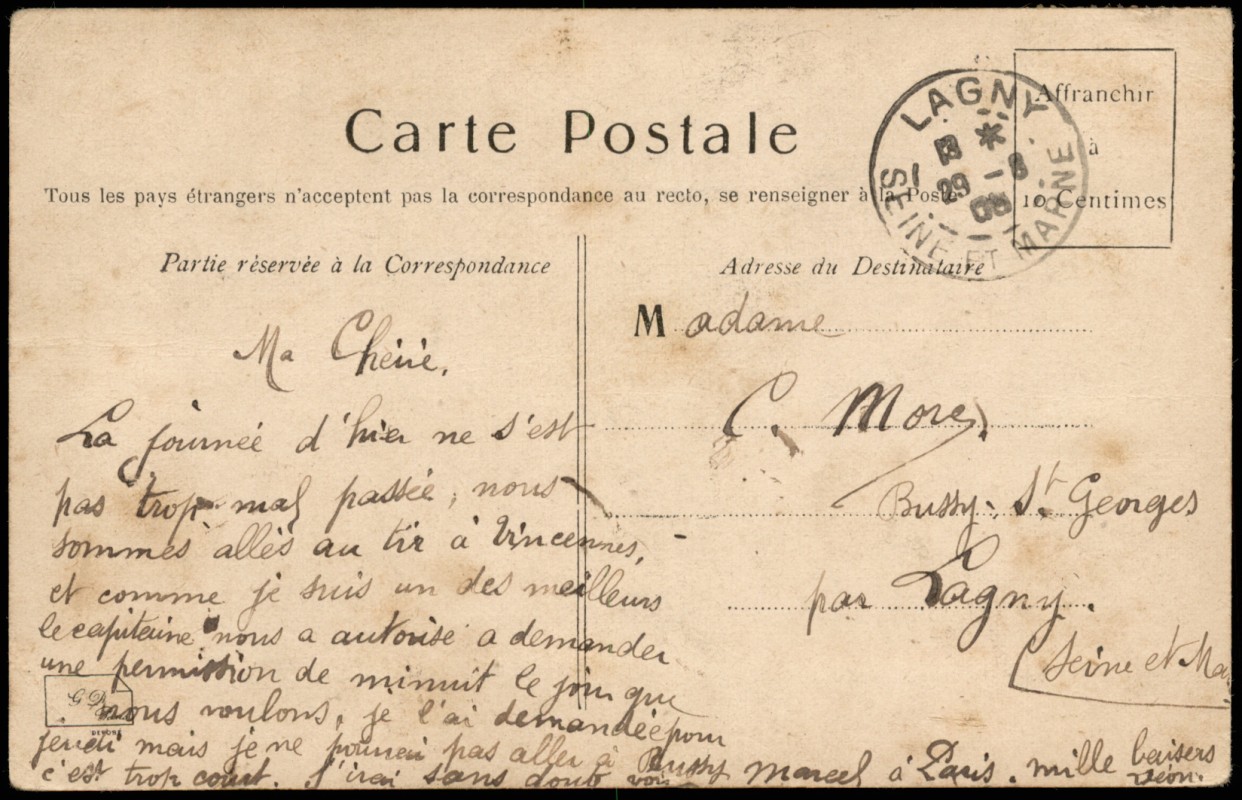 Carte Postale
Tous les pays étrangers n'acceptent pas la correspondance au recto, se renseigner à la Poste
LAGNY
SEINE ET MARNE
Affranchir
à
10 Centimes
Partie réservée à la Correspondance
Ma Chérie.
La journée d'hier ne s'est
pas trop mal passée, nous
sommes allés au tir à Vincennes,
et comme je suis un des meilleurs
le capitaine nous a autorisé a demander
une permission de minuit le jour que
nous voulons, je l'ai demandée pour
jeudi mais je ne pourrai pas aller à Bussy
c'est trop court. J'irai sans dout voir Marcel à Paris. mille baisers
Léon.
Adresse du Destinataire
Madame
C. More,
Bussy-St Georges
par Lagny.
(Seine et Ma